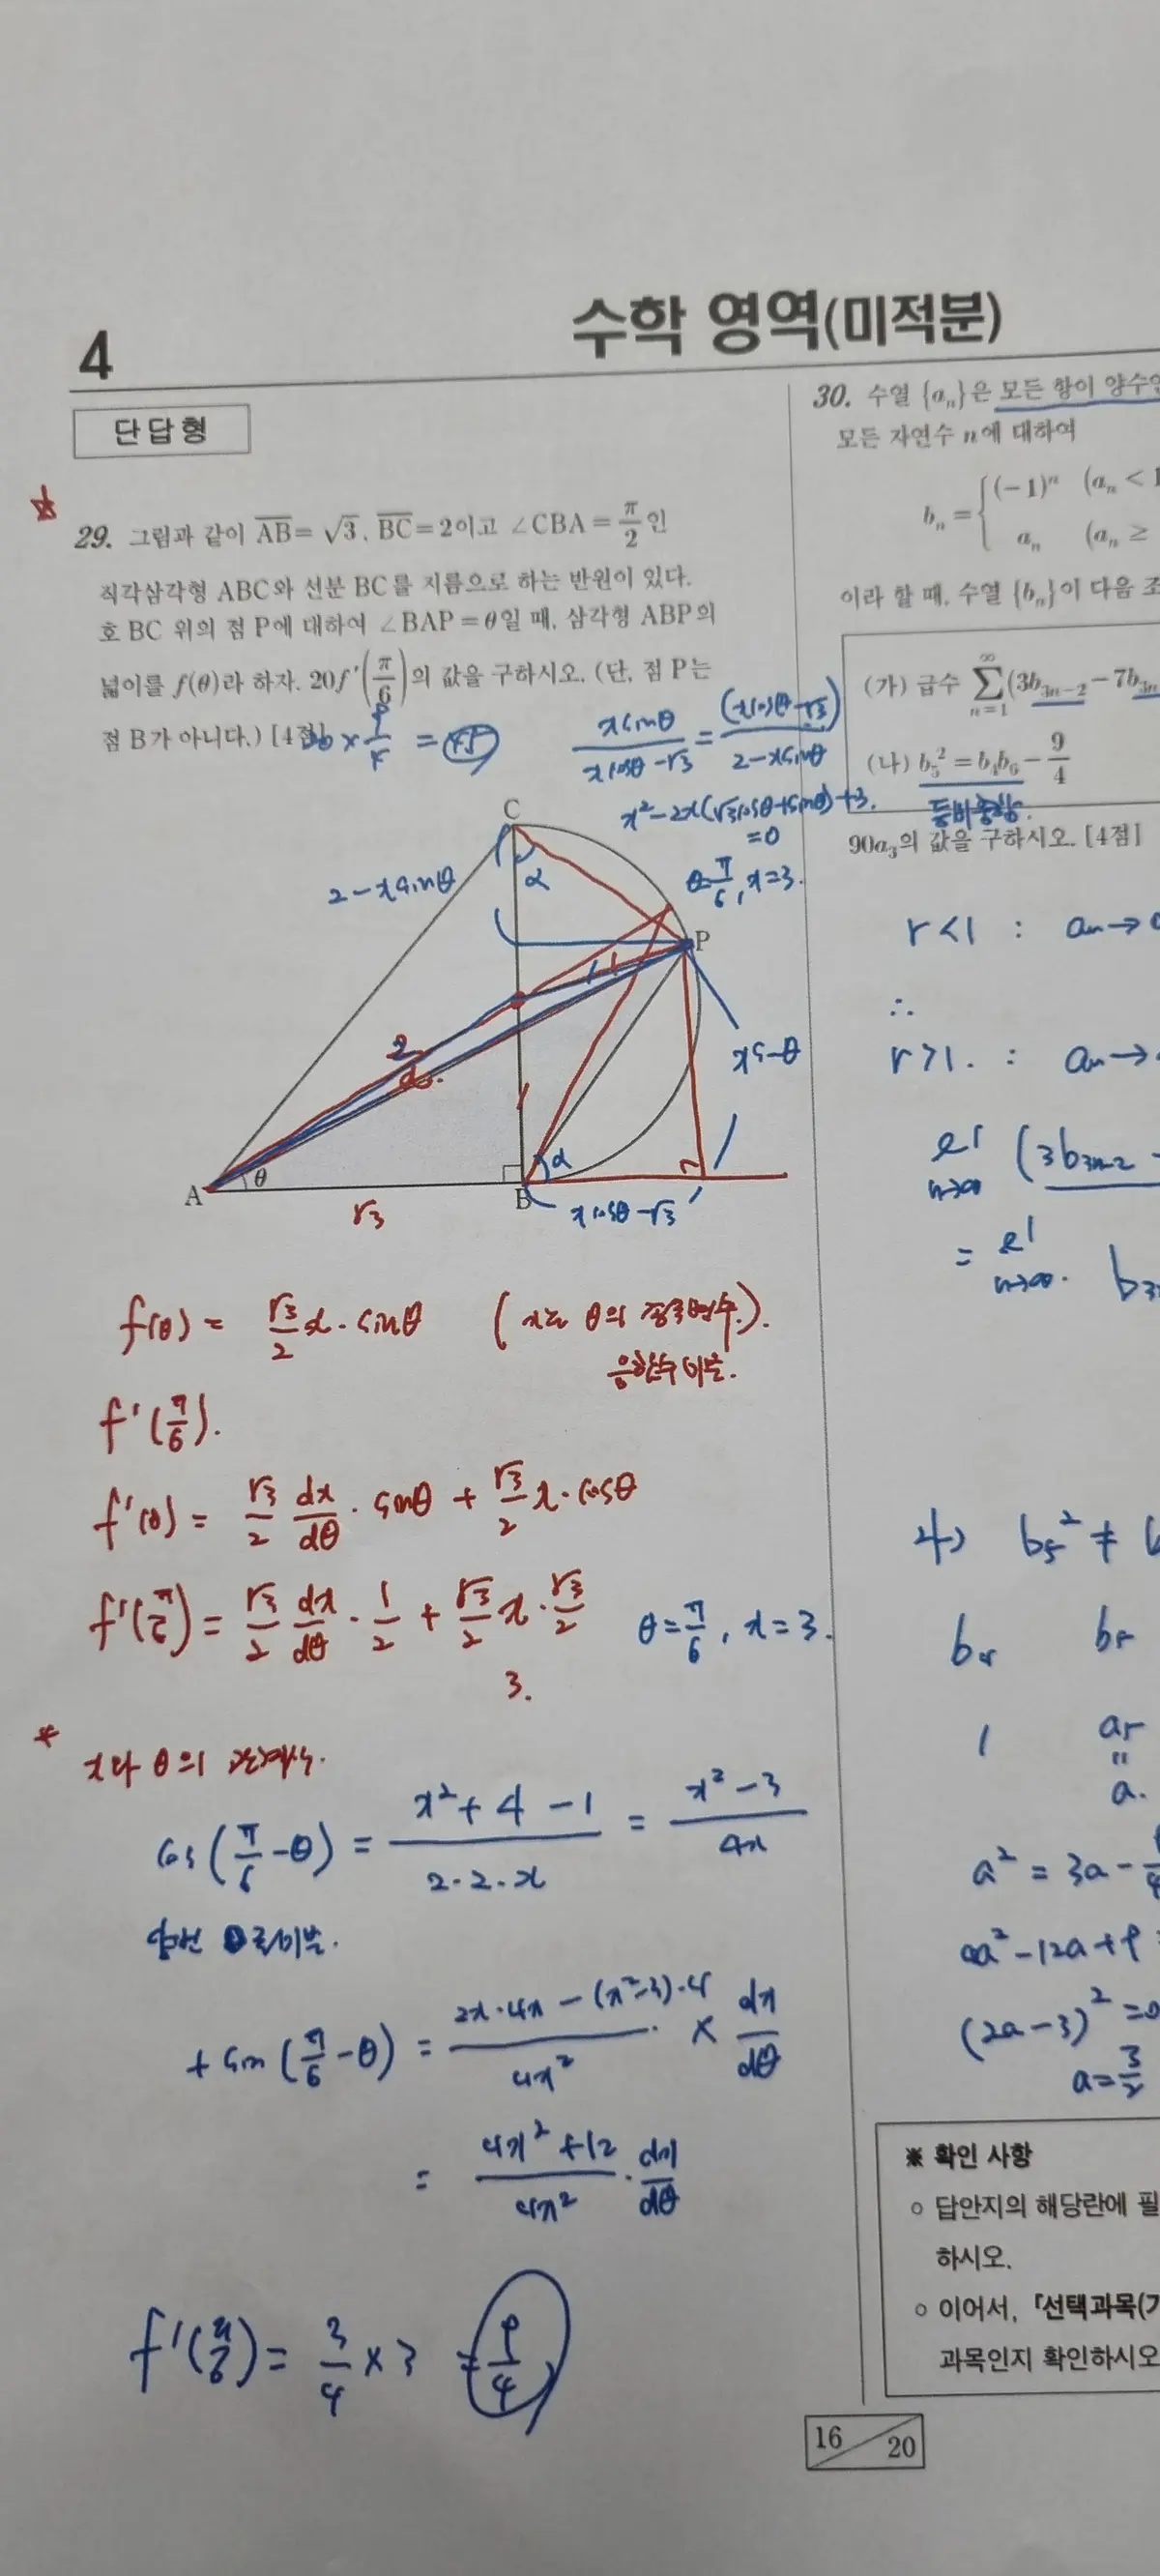 4
수학 영역(미적분)
단답형
29. 그림과 같이 AB = √3, BC = 2이고 ∠CBA = π/2 인
직각삼각형 ABC와 선분 BC를 지름으로 하는 반원이 있다.
호 BC 위의 점 P에 대하여 ∠BAP = θ일 때, 삼각형 ABP의
넓이를 f(θ)라 하자. 20f'(π/6)의 값을 구하시오. (단, 점 P는
점 B가 아니다.) [4점]
20 × 9/4 = 45
xsinθ/(xcosθ-√3) = (xcosθ-√3)/(2-xsinθ)
x²-2x(√3cosθ+sinθ)+3
=0
θ=π/6, x=3.
C
2-xsinθ
α
P
1
2
x
xsinθ
A
θ
√3
B
α
xcosθ-√3
f(θ) = √3/2 x·sinθ (x는 θ의 종속변수.).
음함수 미분.
f'(π/6).
f'(θ) = √3/2 dx/dθ · sinθ + √3/2 x·cosθ
f'(π/6) = √3/2 dx/dθ · 1/2 + √3/2 x · √3/2 θ=π/6, x=3.
3.
* x와 θ의 관계식.
cos(π/6-θ) = (x²+4-1)/(2·2·x) = (x²-3)/4x
양변 θ로 미분.
+sin(π/6-θ) = (2x·4x-(x²-3)·4)/4x² × dx/dθ
= (4x²+12)/4x² · dx/dθ
f'(π/6) = 3/4 × 3 = 9/4
30. 수열 {aₙ}은 모든 항이 양수인
모든 자연수 n에 대하여
bₙ = { (-1)ⁿ (aₙ < 1
aₙ (aₙ ≥
이라 할 때, 수열 {bₙ}이 다음 조
(가) 급수 ∑_{n=1}^{∞} (3b₃ₙ₋₂ - 7b₃ₙ
(나) b₅² = b₄b₆ - 9/4
등비중항.
90a₃의 값을 구하시오. [4점]
r<1 : aₙ→0
∴
r>1. : aₙ→
n→∞ (3b₃ₙ₋₂ -
= n→∞.
나) b₅² ≠
b₄ b₅
1 a₅
"
a.
a² = 3a -
4a²-12a+9
(2a-3)²=0
a=3/2
※ 확인 사항
○ 답안지의 해당란에 필
하시오.
○ 이어서, 「선택과목(기
과목인지 확인하시오
16/20